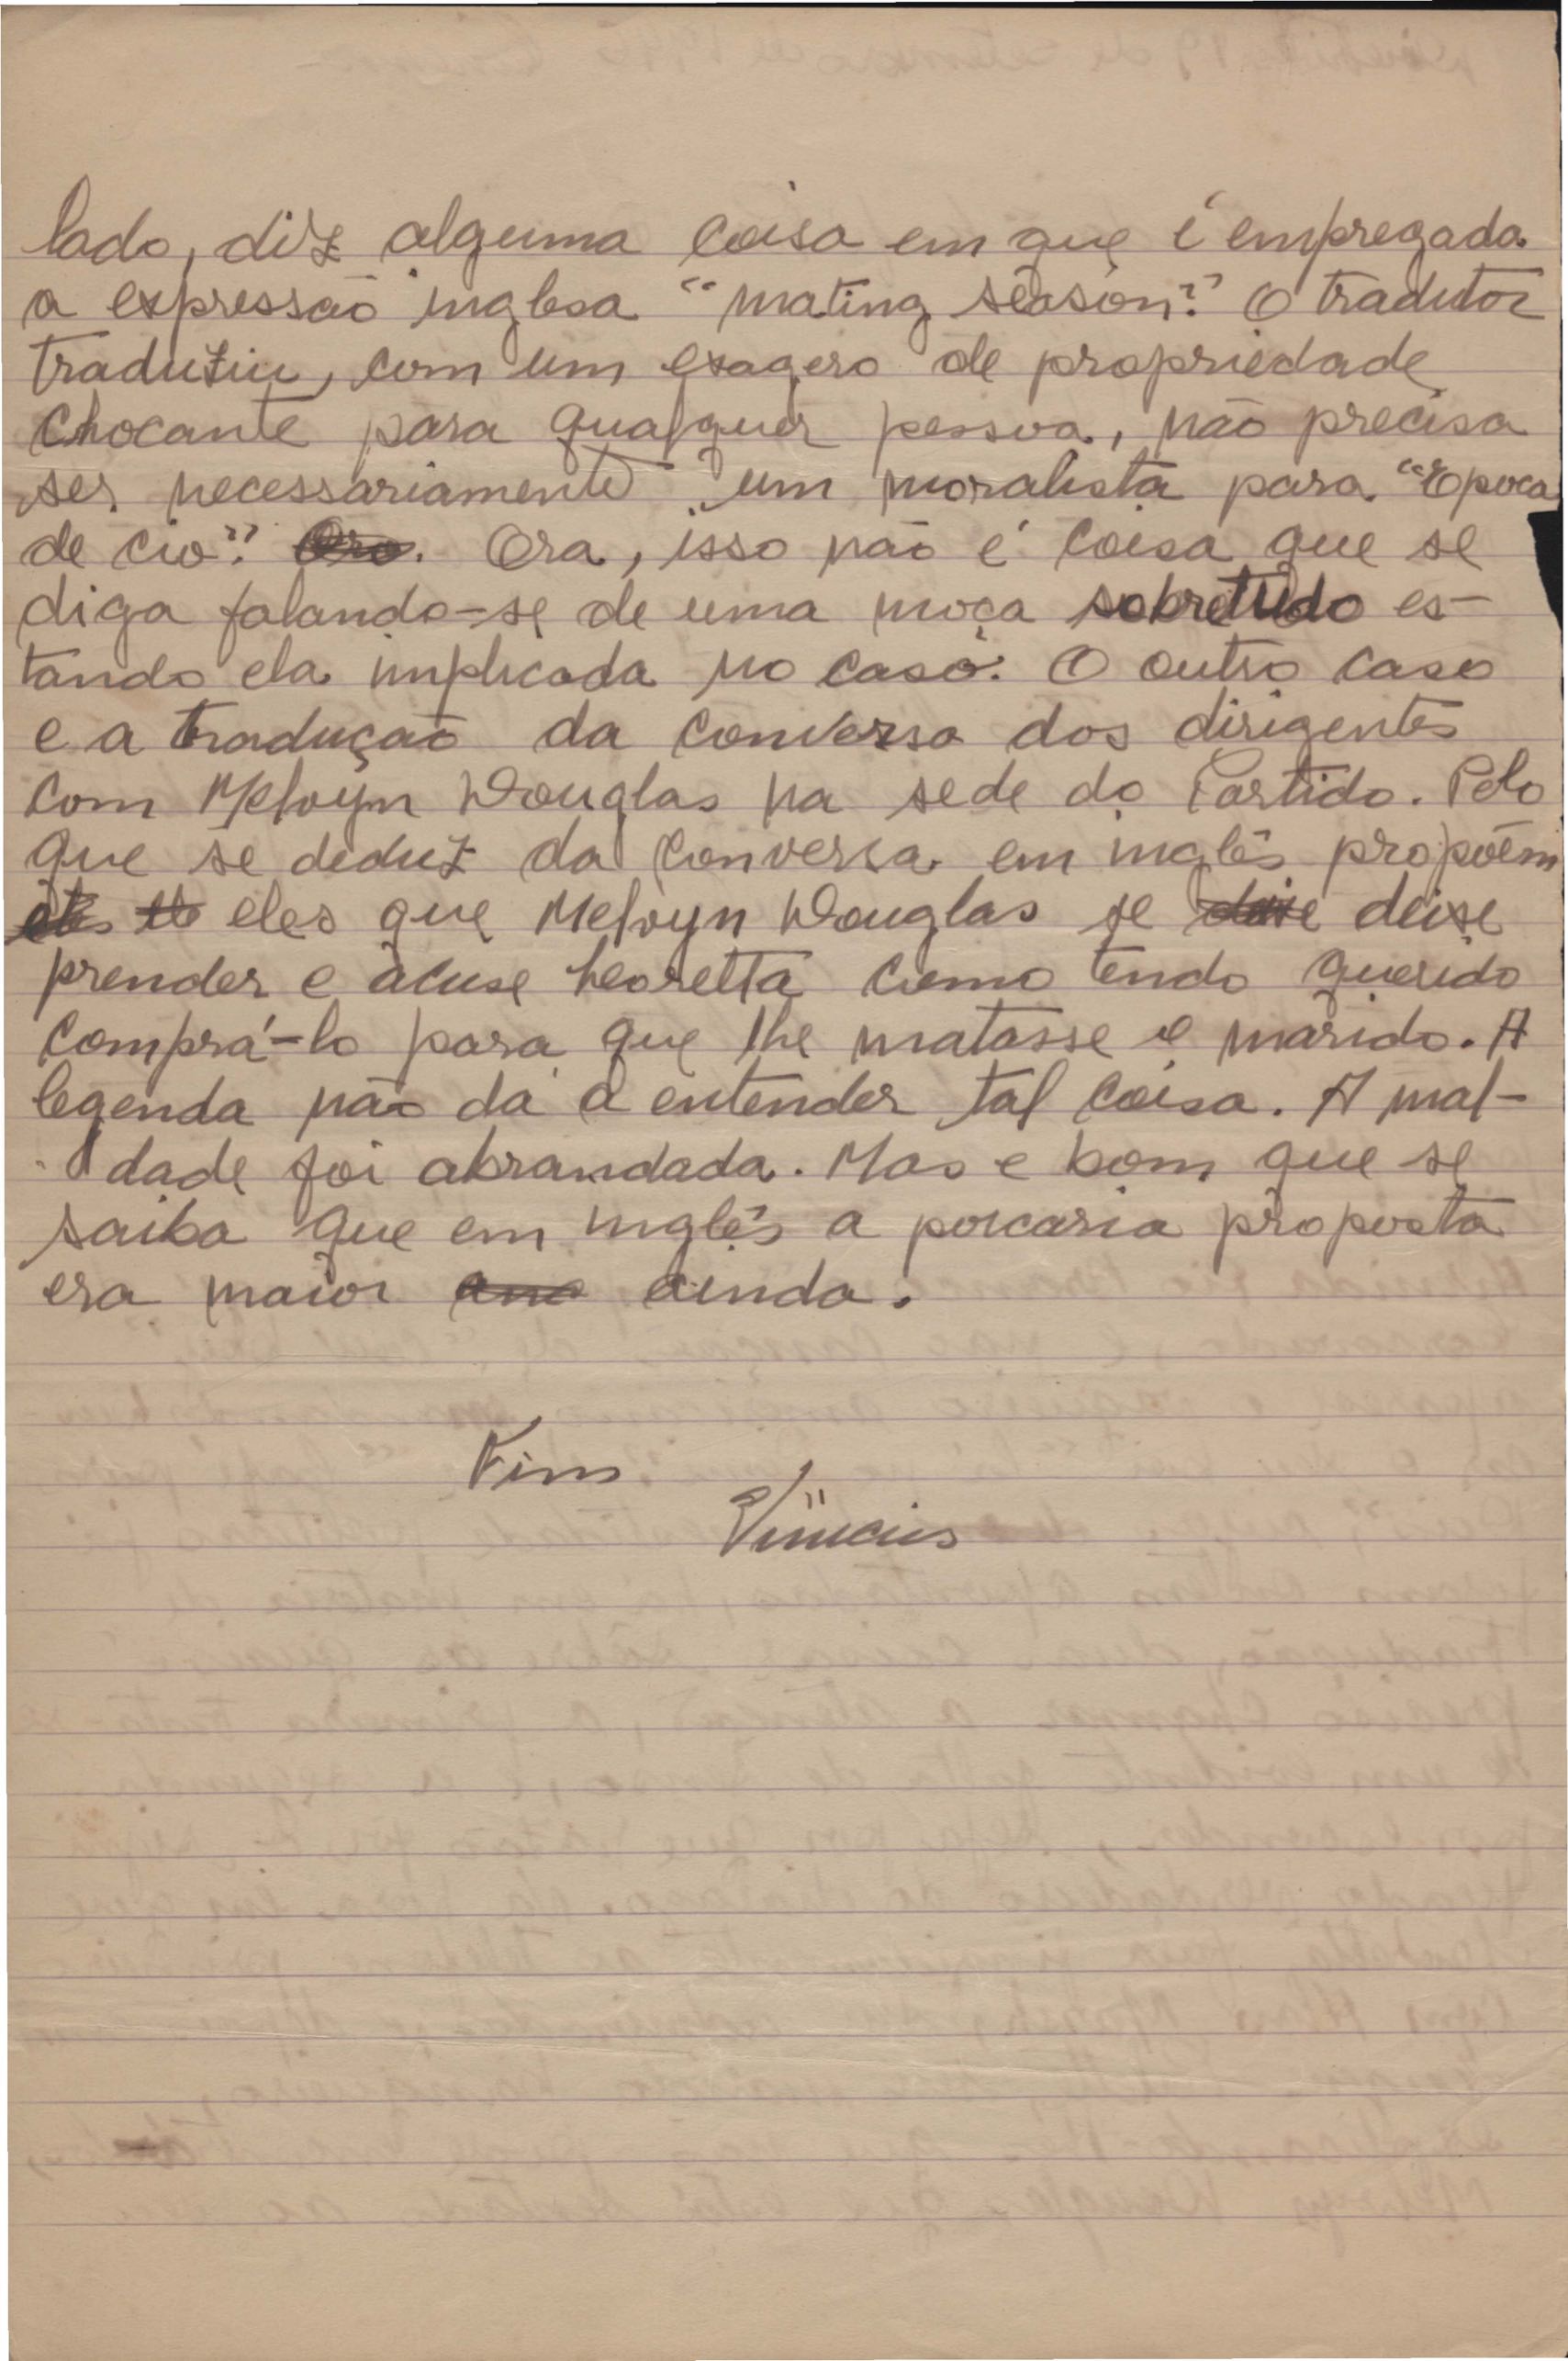 lado, diz alguma coisa em que é empregada
a expressão inglesa "mating season". O tradutor
traduziu, com um exagero de propriedade
chocante para qualquer pessoa, não precisa
ser necessariamente um moralista para. "Epoca
de cio". Ora. Ora, isso não é coisa que se
diga falando-se de uma moça sobretudo es-
tando ela implicada no caso. O outro caso
e a tradução da conversa dos dirigentes
com Melvyn Douglas na sede do Partido. Pelo
que se deduz da conversa em inglês propõem
eles que Melvyn Douglas se deixe
prender e acuse Leoretta como tendo querido
comprá-lo para que lhe matasse o marido. A
legenda não dá a entender tal coisa. A mal-
dade foi abrandada. Mas e bom que se
saiba que em inglês a porcaria proposta
era maior ainda.
Fim
Vinicius